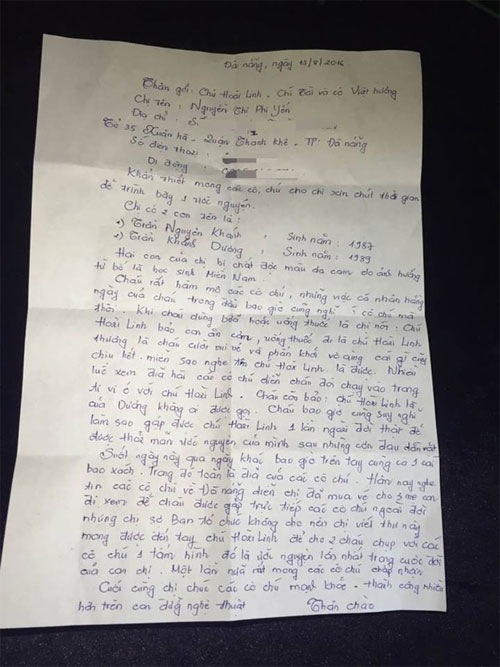 Đà nẵng, ngày 13/8/2016
Thân gởi: Chú Hoài Linh - Chí Tài và cô Việt Hương
Chị tên: Nguyễn Thị Phi Yến
Địa chỉ: Số
Tổ 35 Xuân hà - Quận Thanh Khê - TP: Đà nẵng
Số điện thoại:
Di động:
Khẩn thiết mong các cô, chú cho chị xin chút thời gian
để trình bày 1 ước nguyện.
Chị có 2 con tên là:
1) Trần Nguyên Khánh, Sinh năm: 1987
2) Trần Khánh Dương, Sinh năm: 1989
Hai con của chị bị chất độc màu da cam do ảnh hưởng
từ bố là học sinh Miền Nam.
Cháu rất hâm mộ các cô chú, những việc cá nhân hàng
ngày của cháu trong đầu bao giờ cũng nghĩ có chú mà
thôi. Khi cháu dùng bữa hoặc uống thuốc là chị nói: Chú
Hoài Linh bảo con ăn cơm, uống thuốc đi là chú Hoài Linh
thương là cháu cười vui vẻ và phấn khởi vô cùng cái gì cũng
chịu hết. miễn sao nghe tên chú Hoài Linh là được. Nhiều
lúc xem đĩa hài các cô chú diễn cháu đòi chạy vào trong
ti vi ở với chú Hoài Linh. Cháu còn bảo: chú Hoài Linh là
của Dương không ai được gọi. Cháu bao giờ cũng suy nghĩ
làm sao gặp được chú Hoài Linh 1 lần ngoài đời thật để
được thỏa mãn ước nguyện của mình sau những cơn đau
Suốt ngày này qua ngày khác bao giờ trên tay cũng có 1 cái
bao xách. Trong đó toàn là đĩa của các cô chú. Hôm nay nghe
tin các cô chú về Đà nẵng diễn chị đã mua vé cho 3 mẹ con
đi xem để cháu được gặp trực tiếp các cô chú ngoài đời
nhưng chị sợ Ban tổ chức không cho nên chị viết thư này
mong được đến tay chú Hoài Linh để cho 2 cháu chụp với các
cô chú 1 tấm hình đó là ước nguyện lớn nhất trong cuộc đời
của con chị. Một lần nữa rất mong các cô chú chấp nhận.
Cuối cùng chị chúc các cô chú mạnh khỏe - thành công nhiều
hơn trên con đường nghệ thuật
Thân chào